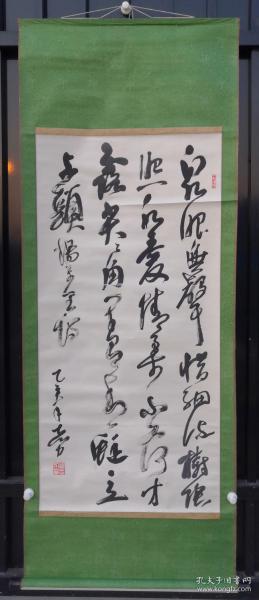 泉眼無聲惜細流樹陰
照水愛晴柔小荷才
露尖尖角早有蜻蜓立
上頭 楊萬里
乙亥年
孔夫子旧书网